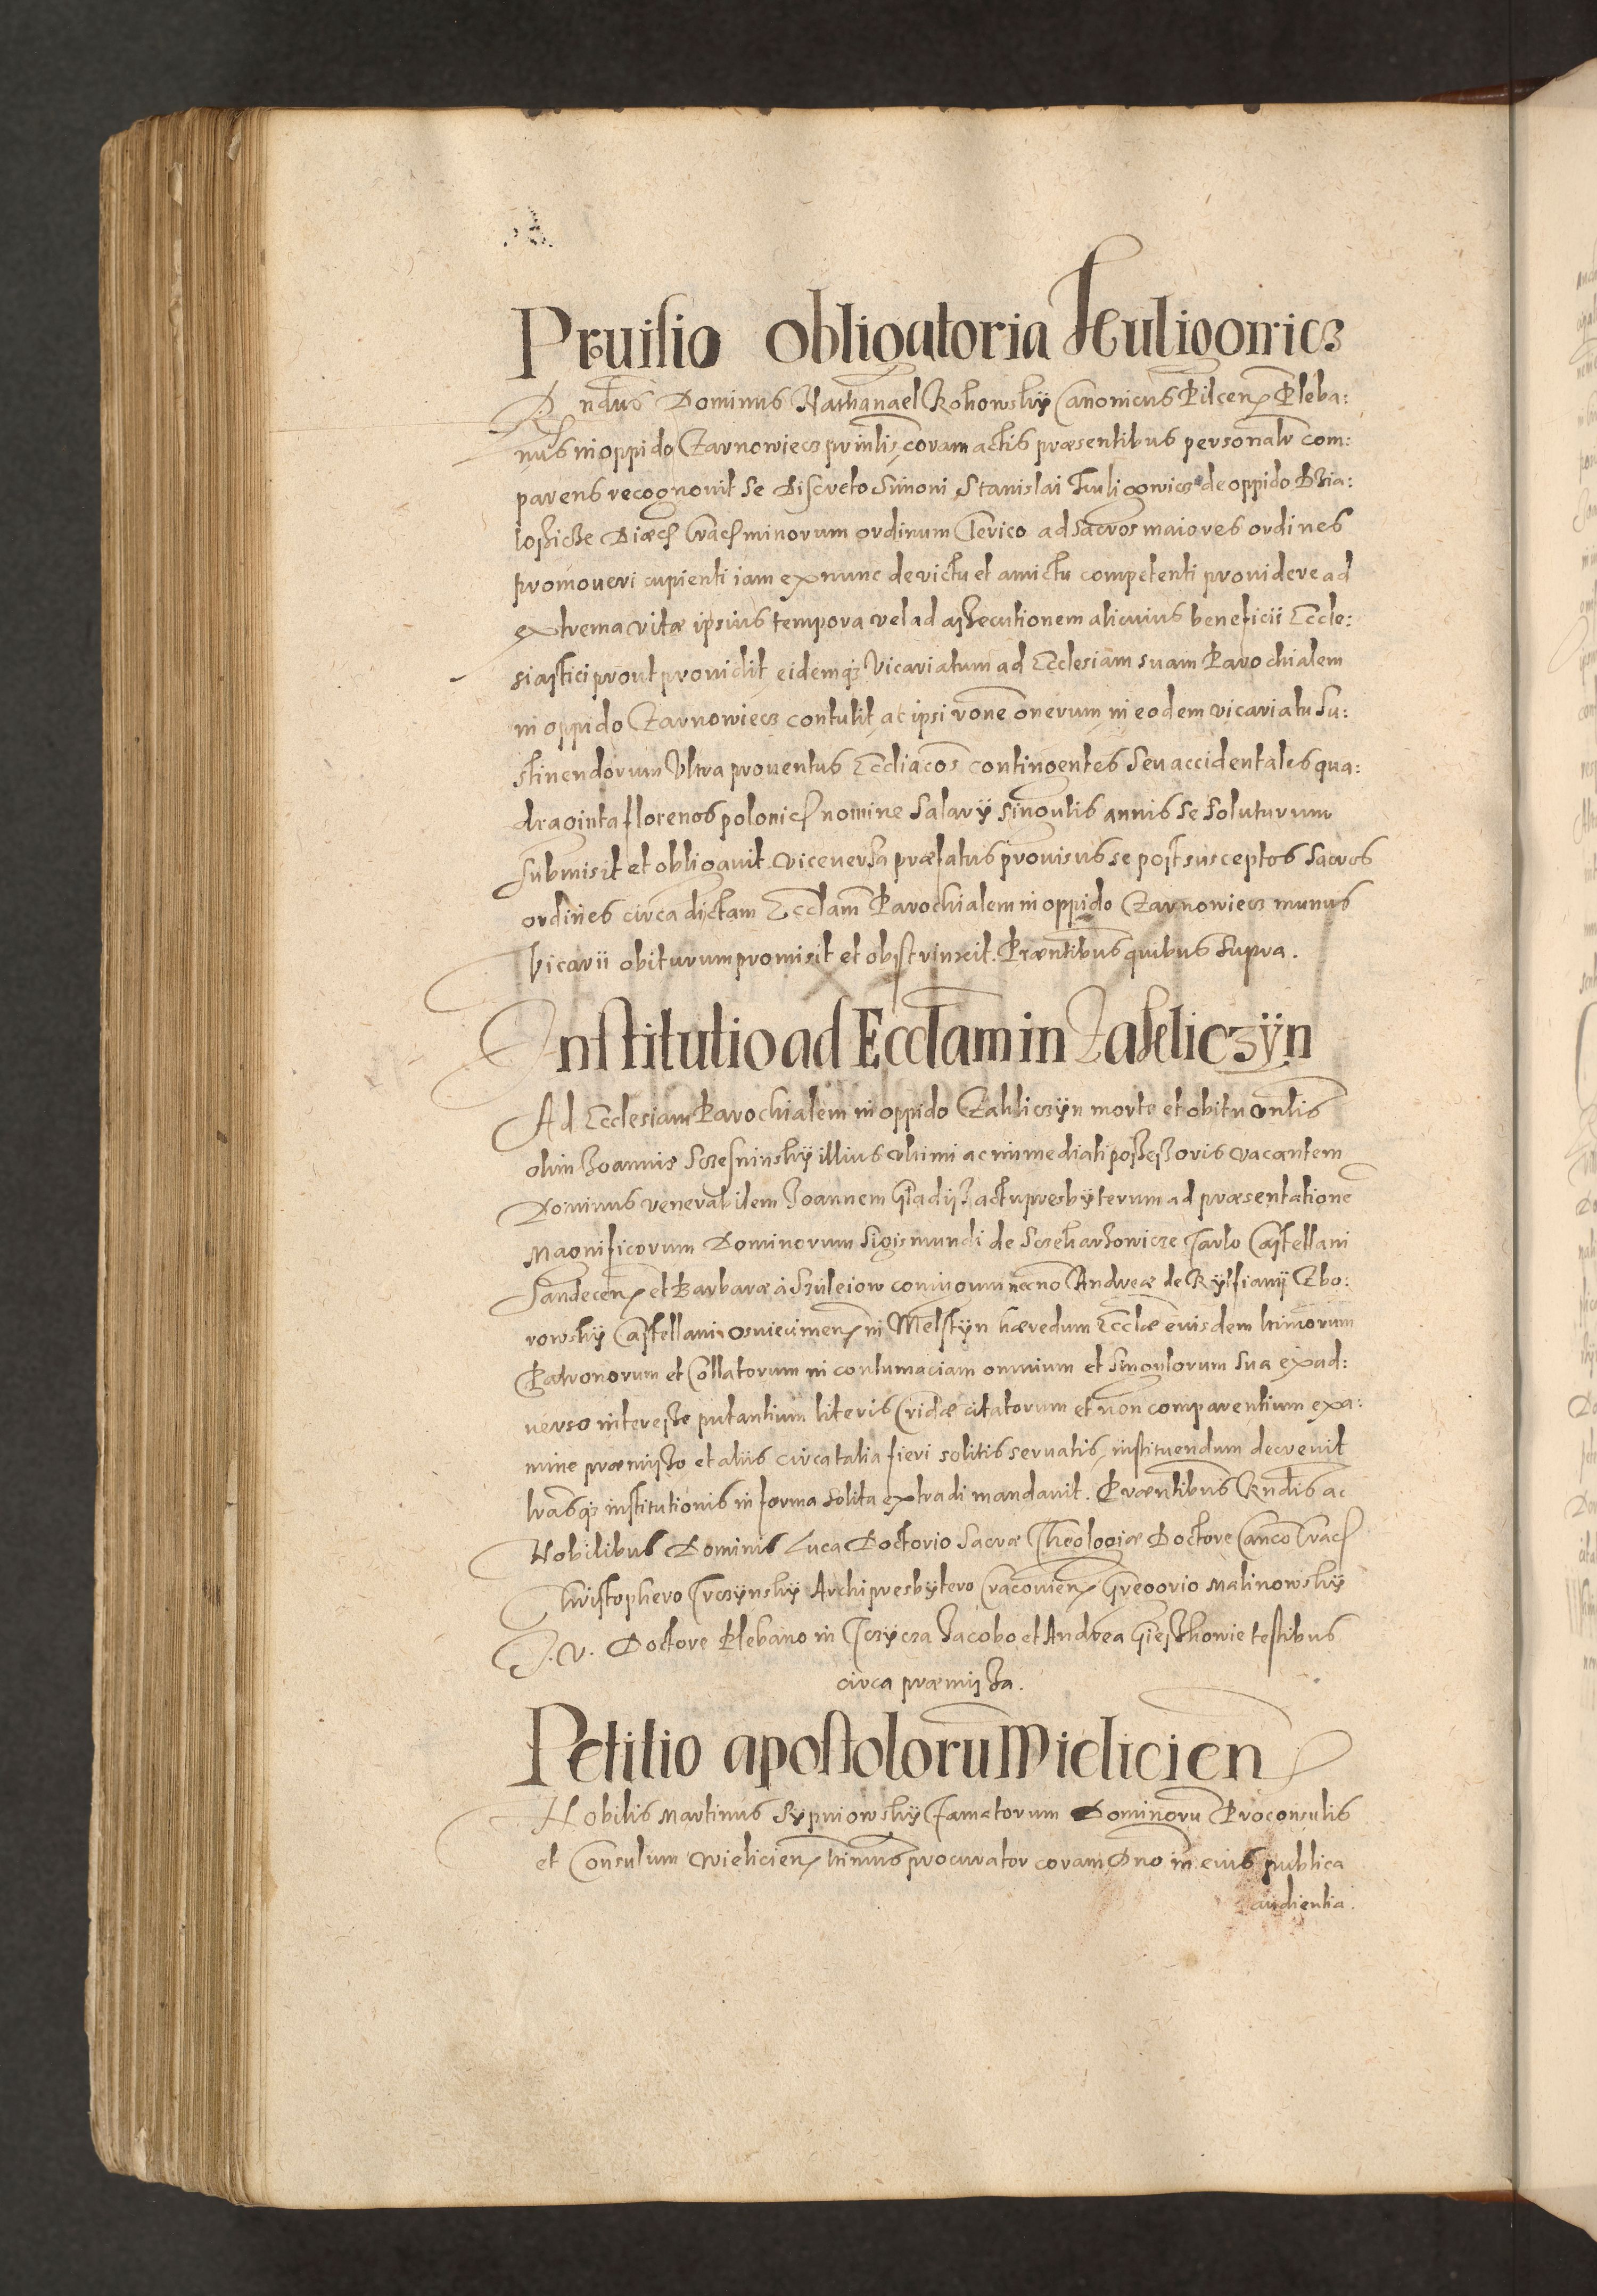 Prouisio obligatoria Kuligowicz
Rndus Dominus Nathanael Kohowskÿ Canonicus Pilcen Pleba:
nus in oppido Czarnowiecz printis, coram actis præsentibus personalr com:
parens recognouit se Discreto Simoni Stanislai Kuligowicz de oppido Dzia:
loßicze Diæc Crac minorum ordinum Clerico ad sacros maiores ordines
promoueri cupienti iam ex nunc de victu et amictu competenti prouidere ad
extrema vitæ ipsius tempora vel ad assecutionem alicuius beneficii Eccle:
siastici prout prouidit, eidemqз Vicariatum ad Ecclesiam suam Parochialem
in oppido Czarnowiecz contulit, ac ipsi rone onerum in eodem vicariatu su:
stinendorum Vltra prouentus Eccliacos contingentes seu accidentales qua:
draginta florenos polonic nomine salarÿ singulis annis se soluturum
submisit et obligauit. vice uersa præfatus prouisus se post susceptos sacros
ordines circa dictam Ecclam Parochialem in oppido Czarnowiecz munus
vicarii obiturum promisit et obstrinxit. Præntibus quibus supra.
Institutio ad Ecclam in Zakliczÿn
Ad Ecclesiam Parochialem in oppido Zakliczÿn morte et obitu
olim Joannis illius vltimi ac immediati possessoris vacantem
Dominus venerabilem Joannem Gladÿsz actu presbÿterum ad præsentatione
Magnificorum Dominorum Sigismundi de Sczekarzowicze Tarlo Castellani
Sandecen et Barbaræ à coniugum necno Andreæ de Rÿtfianÿ Zbo:
rowskÿ Castellani osviecimen in Melstÿn hæredum Ecclæ eiusdem ltimorum
Patronorum et Collatorum in contumaciam omnium et singulorum sua ex ad:
uerso interesse putantium literis Cridæ citatorum et non comparentium exa:
mine præmisso et aliis circa talia fieri solitis seruatis, instituendum decreuit
lrasqз institutionis in forma solita extradi mandauit. Præntibus Rndis ac
Nobilibus Dominis Luca Doctorio Sacræ Theologiæ Doctore Canco Crac
Christophero Trczÿnskÿ Archipresbÿtero Cracouien Gregorio Malinowskÿ
J. V. Doctore Plebano in Tczÿcza Jacobo et Andrea testibus
circa præmissa.
Petitio apostoloru Wielicien
Nobilis Martinus Sÿpniowskÿ Famatorum Dominoru Proconsulis
et Consulum Wielicien ltimus procurator coram Dno in eius publica
audientia.